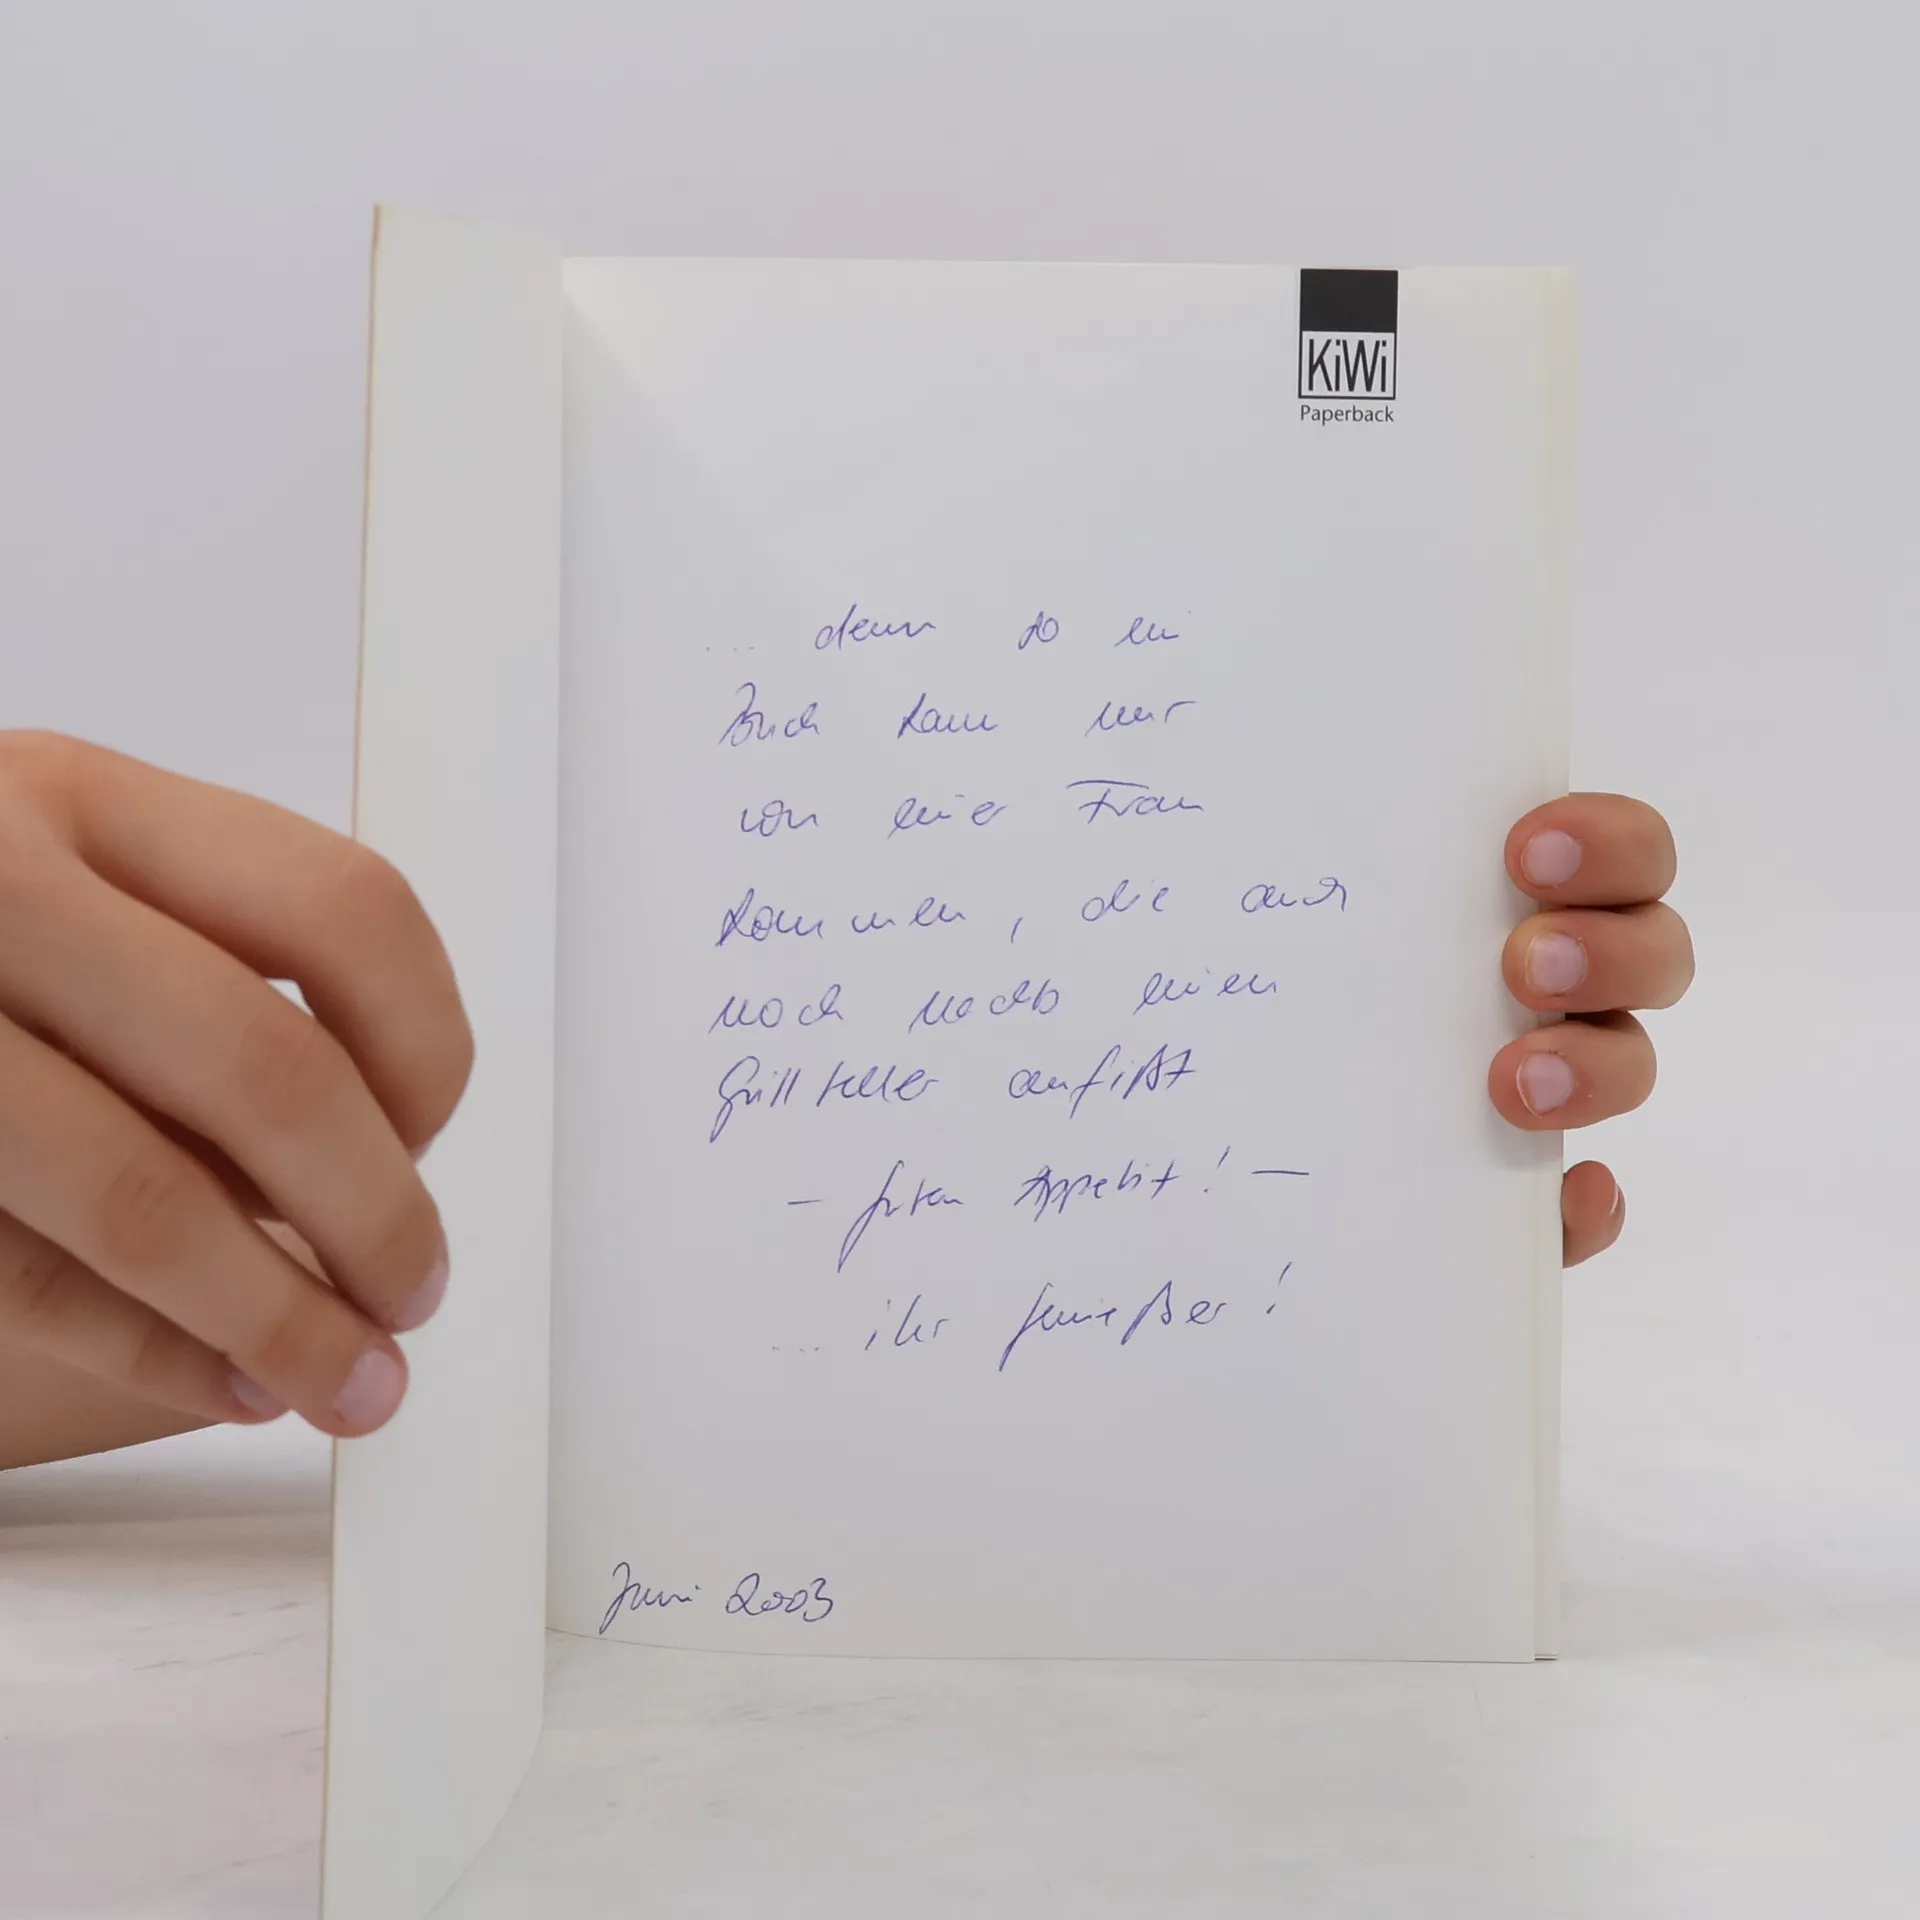 KiWi
Paperback
... denn so ein
Buch kann nur
von einer Frau
kommen, die auch
noch nachts einen
Grillteller aufißt
- guten Appetit! -
... ihr Genießer!
Juni 2003